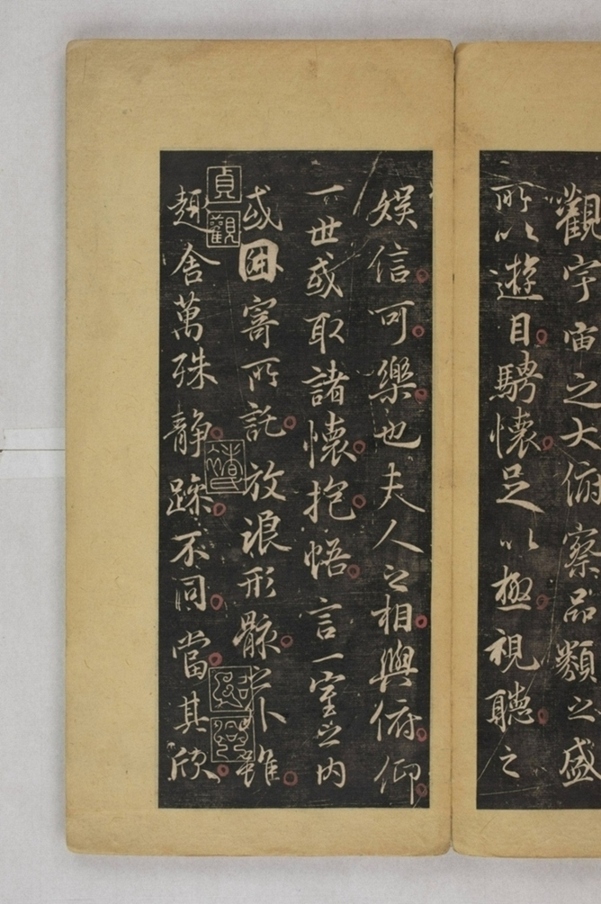 觀宇宙之大俯察品類之盛
所以遊目騁懷足以極視聽之
娛信可樂也夫人之相與俯仰
一世或取諸懷抱悟言一室之內
或因寄所託放浪形骸之外雖
趣舍萬殊靜躁不同當其欣
貞
觀